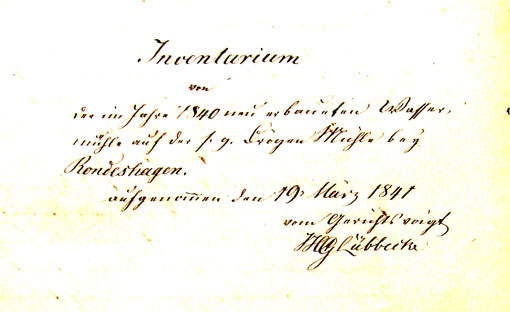 Inventarium
von
der im Jahre 1840 neu erbaueten Wasser,
mühle auf der s. g. Drögen Mühle bey
Rondeshagen.
aufgenommen den 19 März 1841
vom Gerichtsvoigt
Lübbecke